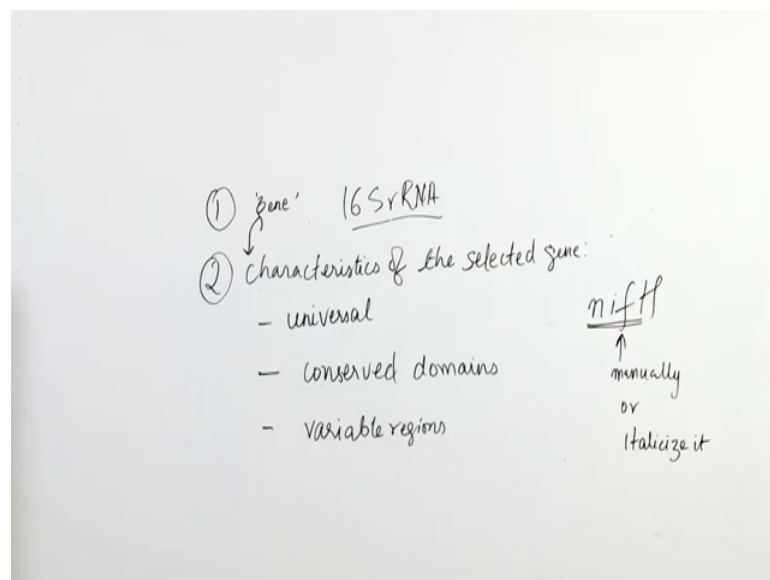 ① 'gene' 16SrRNA
② Characteristics of the selected gene:
- universal
- conserved domains
- variable regions
nifH
↑
manually
or
Italicize it